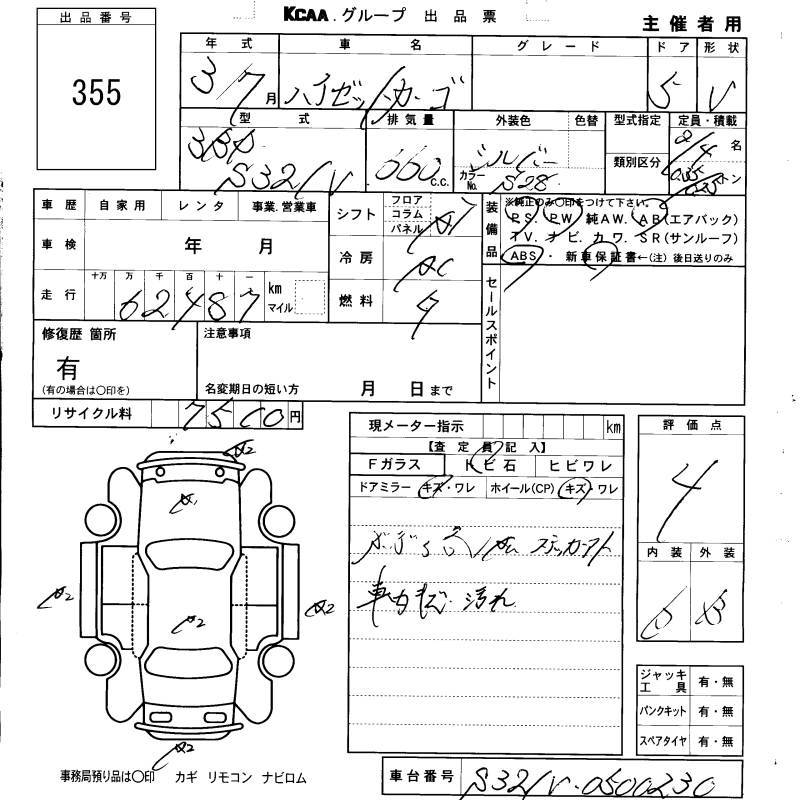 KCAA.グループ 出品票
主催者用
出品番号
355
年式 車名 グレード ドア 形状
3/7月 ハイゼットカーゴ 5 V
型式 排気量 外装色 色替 型式指定 定員・積載
3BD 660 c.c. シルバー 2/4名
S321V カラーNo. S28 類別区分 トン
車歴 自家用 レンタ 事業.営業車
シフト フロア コラム パネル AT
装備品 ※純正のみ○印をつけて下さい。
PS. PW. 純AW. AB(エアバック)
TV. ナビ. カワ. SR(サンルーフ)
ABS・新車保証書←(注)後日送りのみ
車検 年 月
冷房 AC
走行 十万 万 千 百 十 一
62487 km マイル
燃料 ガ
セールスポイント
修復歴 箇所
有
(有の場合は○印を)
注意事項
名変期日の短い方 月 日まで
リサイクル料 7500円
現メーター指示 km
【査定員記入】
Fガラス トビ石 ヒビワレ
ドアミラー キズ・ワレ ホイール(CP) キズ・ワレ
ステッカーアト
車内キズ・汚れ
評価点
4
内装 外装
B
A2
A1
A2
A2
A2
A2
ジャッキ工具 有・無
パンクキット 有・無
スペアタイヤ 有・無
事務局預り品は○印 カギ リモコン ナビロム
車台番号 S321V-0500230